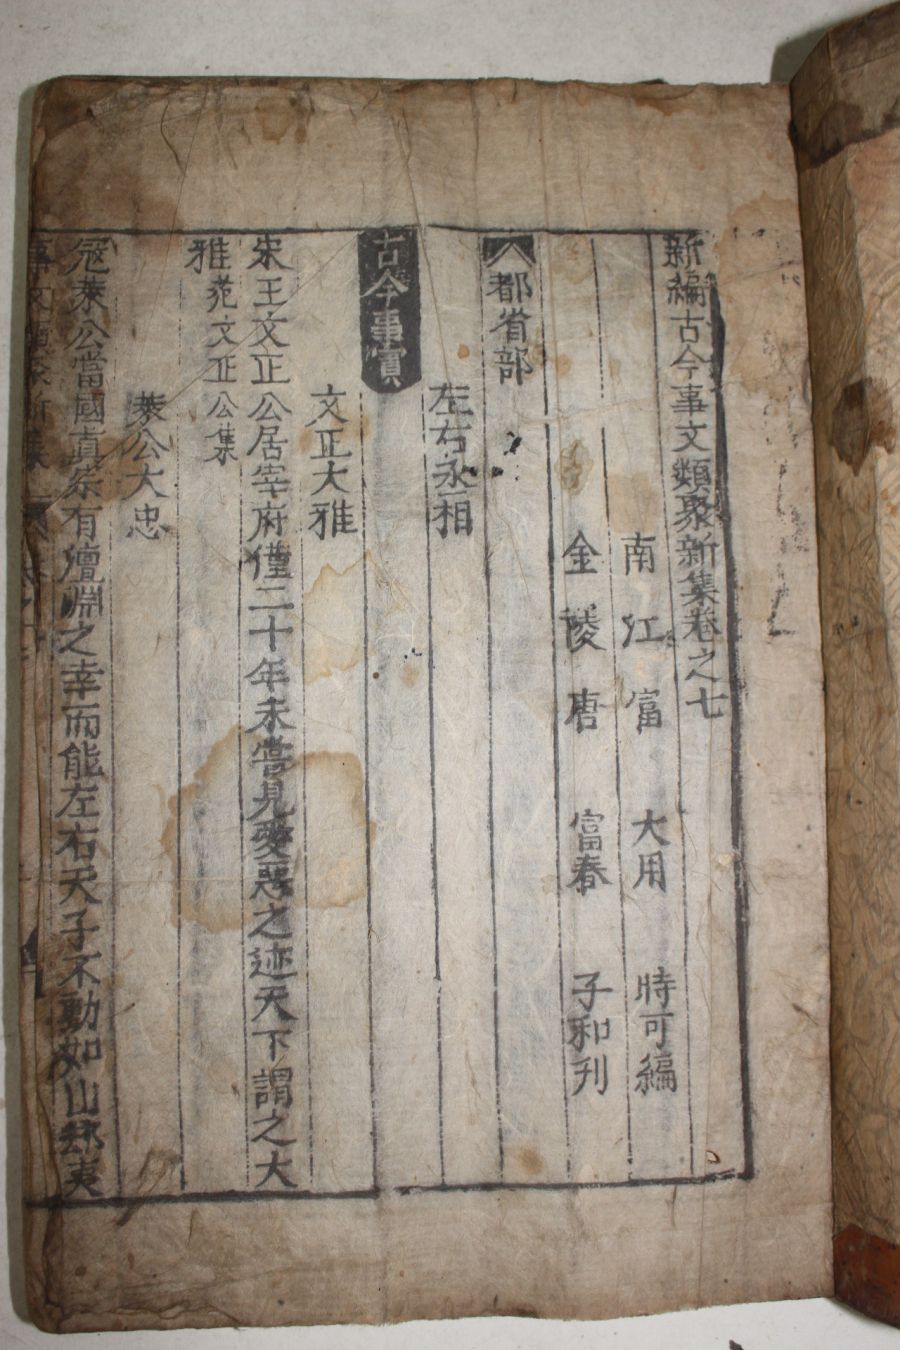 新編古今事文類聚新集卷之七
南江 富 大用 時可 編
金陵 唐 富春 子和 刋
都省部
左右丞相
古今事實
文正大雅
宋王文正公居宰府僅二十年未嘗見愛惡之迹天下謂之大
雅 范文正公集
萊公大忠
寇萊公當國眞宗有澶淵之幸而能左右天子不動如山却夷